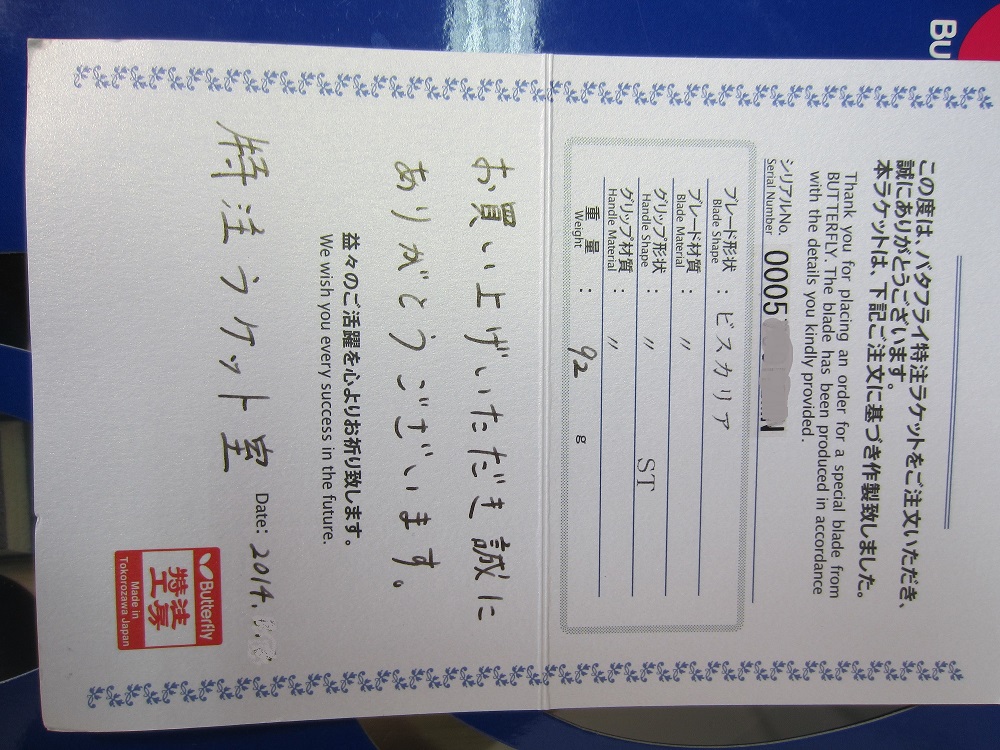 Bu
この度は、バタフライ特注ラケットをご注文いただき、
誠にありがとうございます。
本ラケットは、下記ご注文に基づき作製致しました。
Thank you for placing an order for a special blade from
BUTTERFLY. The blade has been produced in accordance
with the details you kindly provided.
シリアルNo. 0005
Serial Number
ブレード形状 : ビスカリア
Blade Shape
ブレード材質 : 〃
Blade Material
グリップ形状 : 〃 ST
Handle Shape
グリップ材質 : 〃
Handle Material
重量 : 92 g
Weight
お買い上げいただき誠に
ありがとうございます。
益々のご活躍を心よりお祈り致します。
We wish you every success in the future.
特注ラケット室
Date: 2014.
Butterfly
特注工房
Made in
Tokorozawa Japan